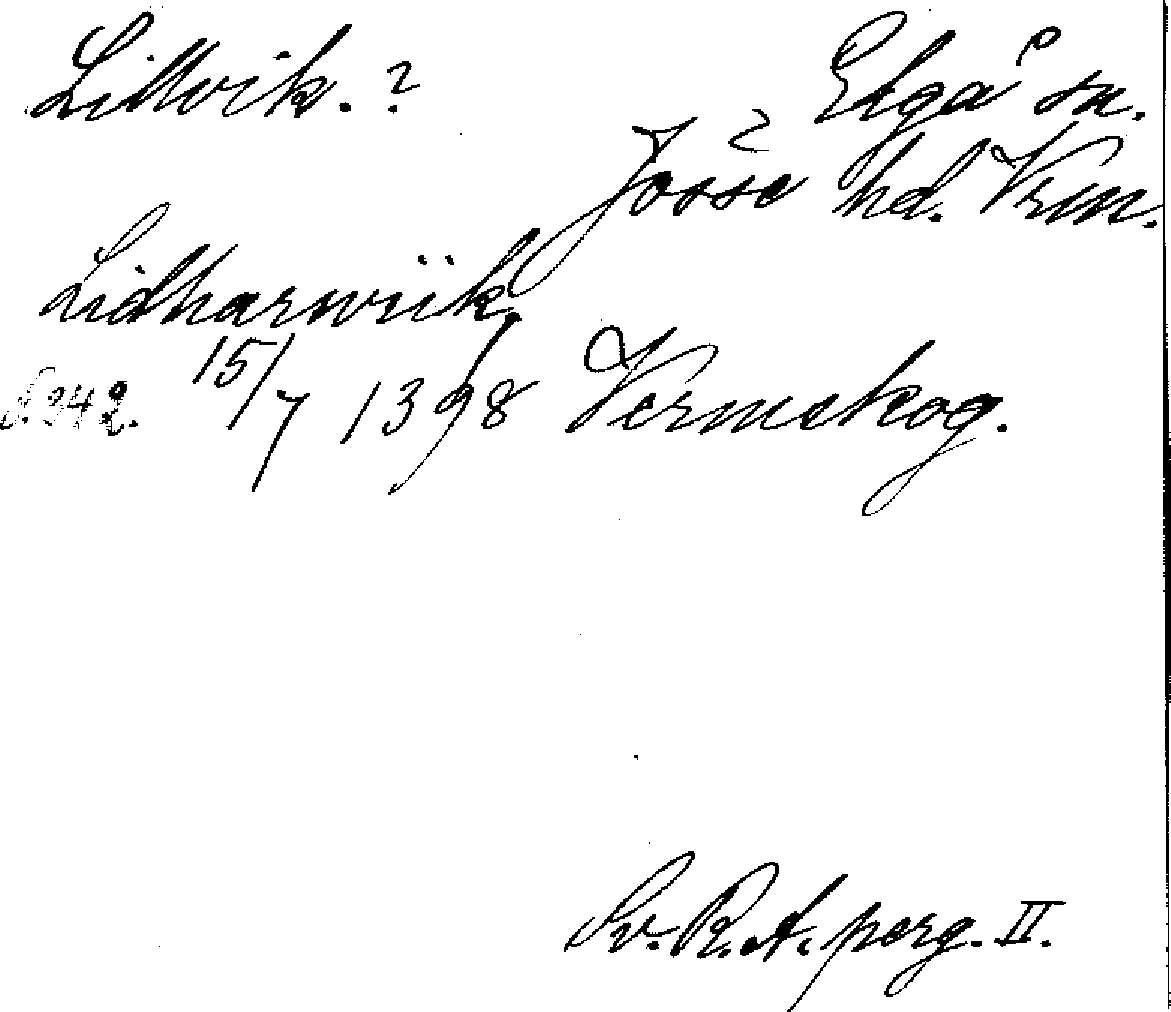 Lillvik. ?
Elgå sn.
Jösse hd. Vrm.
Lidharwiik,
s. 342. 15/7 1398 Vermskog.
Sv. R. A. perg. II.